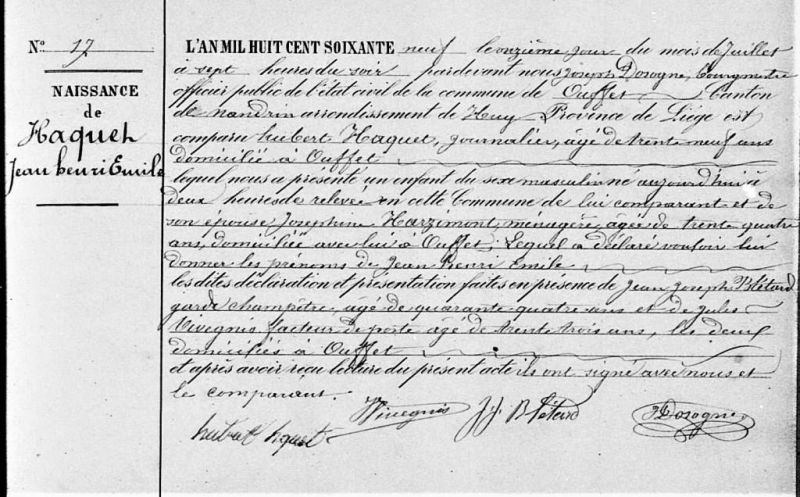 N° 17
NAISSANCE
de
Haquet
Jean henri Emile
L'AN MIL HUIT CENT SOIXANTE neuf le onzième jour du mois de Juillet
à sept heures du soir pardevant nous Joseph Dosogne, bourgmestre
officier public de l'état civil de la commune de Ouffet, Canton
de nandrin arrondissement de Huy Province de Liège est
comparu hubert Haquet, journalier, âgé de trente neuf ans
domicilié à Ouffet
lequel nous a présenté un enfant du sexe masculin né aujourd'hui à
deux heures de relevée en cette Commune de lui comparant et de
son épouse Josephine Harzimont, ménagère, âgée de trente quatre
ans, domiciliée avec lui à Ouffet, Lequel a déclaré vouloir lui
donner les prénoms de Jean henri Emile
les dites déclaration et présentation faites en présence de Jean Joseph Blétard
garde champêtre, âgé de quarante quatre ans et de Jules
Vivegnis facteur de poste agé de trente trois ans, les deux
domiciliés à Ouffet
et après avoir reçu lecture du présent acte ils ont signé avec nous et
le comparant.
hubert haquet JVivegnis JJ Blétard JDosogne